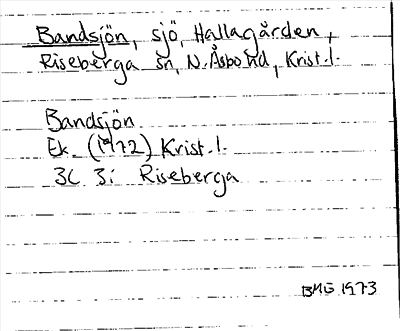 Bandsjön, sjö, Hallagården,
Riseberga sn, N. Åsbo hd, Krist. l.
Bandsjön
Ek. (1972) Krist. l.
3C 3i Riseberga
BMG 1973